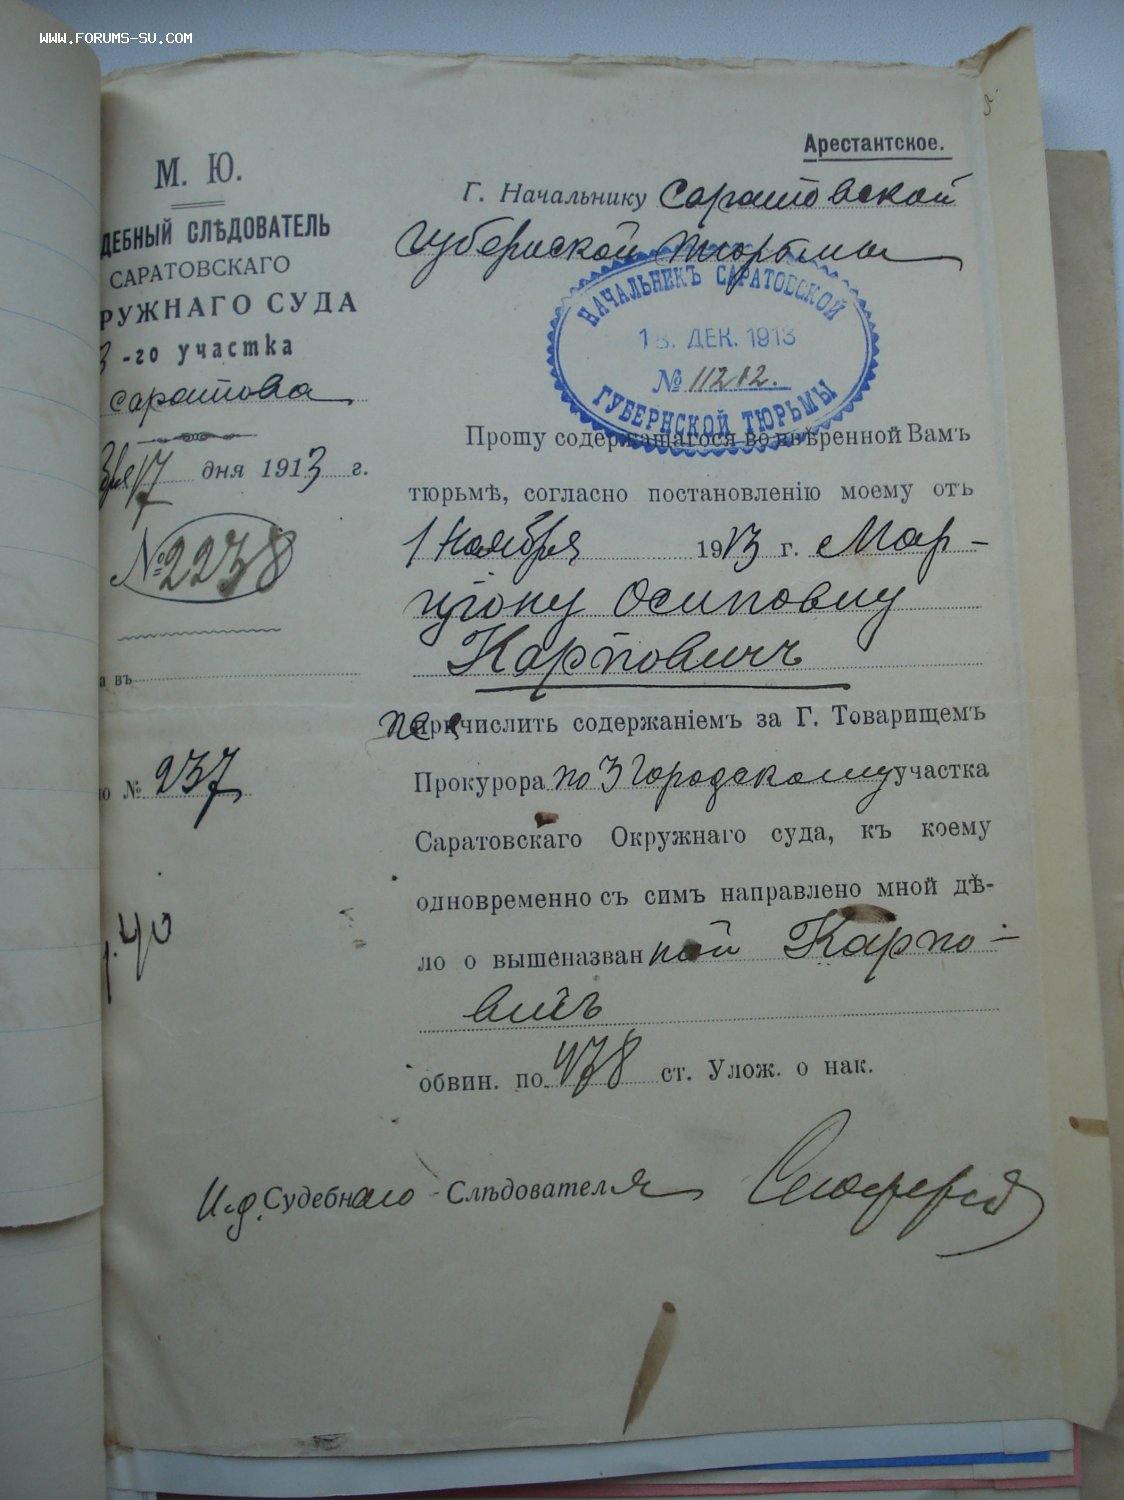 WWW.FORUMS-SU.COM
М. Ю.
ДЕБНЫЙ СЛѢДОВАТЕЛЬ
САРАТОВСКАГО
РУЖНАГО СУДА
3-го участка
Саратова
бря 17 дня 1913 г.
№ 2238
а въ
но № 237
Арестантское.
Г. Начальнику Саратовской
Губернской тюрьмы
НАЧАЛЬНИКЪ САРАТОВСКОЙ
18. ДЕК. 1913
№ 11212.
ГУБЕРНСКОЙ ТЮРЬМЫ
Прошу содержащагося во ввѣренной Вамъ
тюрьмѣ, согласно постановленію моему отъ
1 Ноября 1913 г. Мар-
ціону Осиповну
Карповичъ
перечислить содержаніемъ за Г. Товарищемъ
Прокурора по 3 Городскому участка
Саратовскаго Окружнаго суда, къ коему
одновременно съ симъ направлено мной дѣ-
ло о вышеназванной Карпо-
вичъ
обвин. по 978 ст. Улож. о нак.
И. д. Судебнаго Слѣдователя